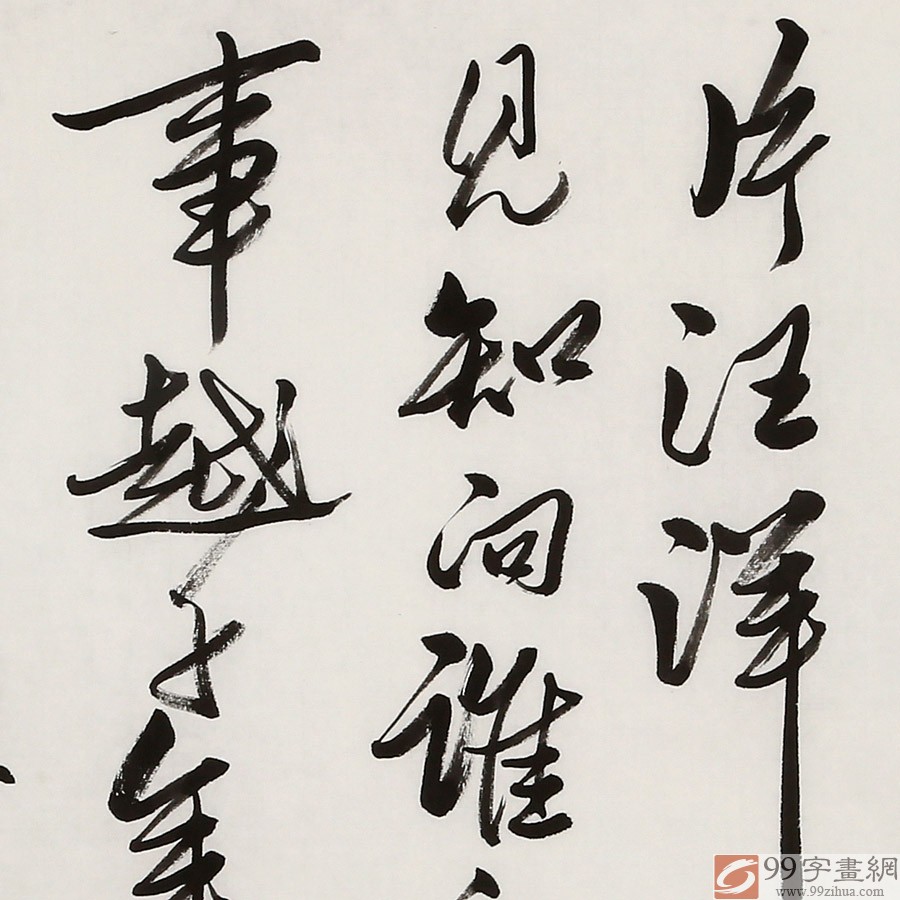 片汪洋
见知向谁
事越千年
99字畫網
www.99zihua.com